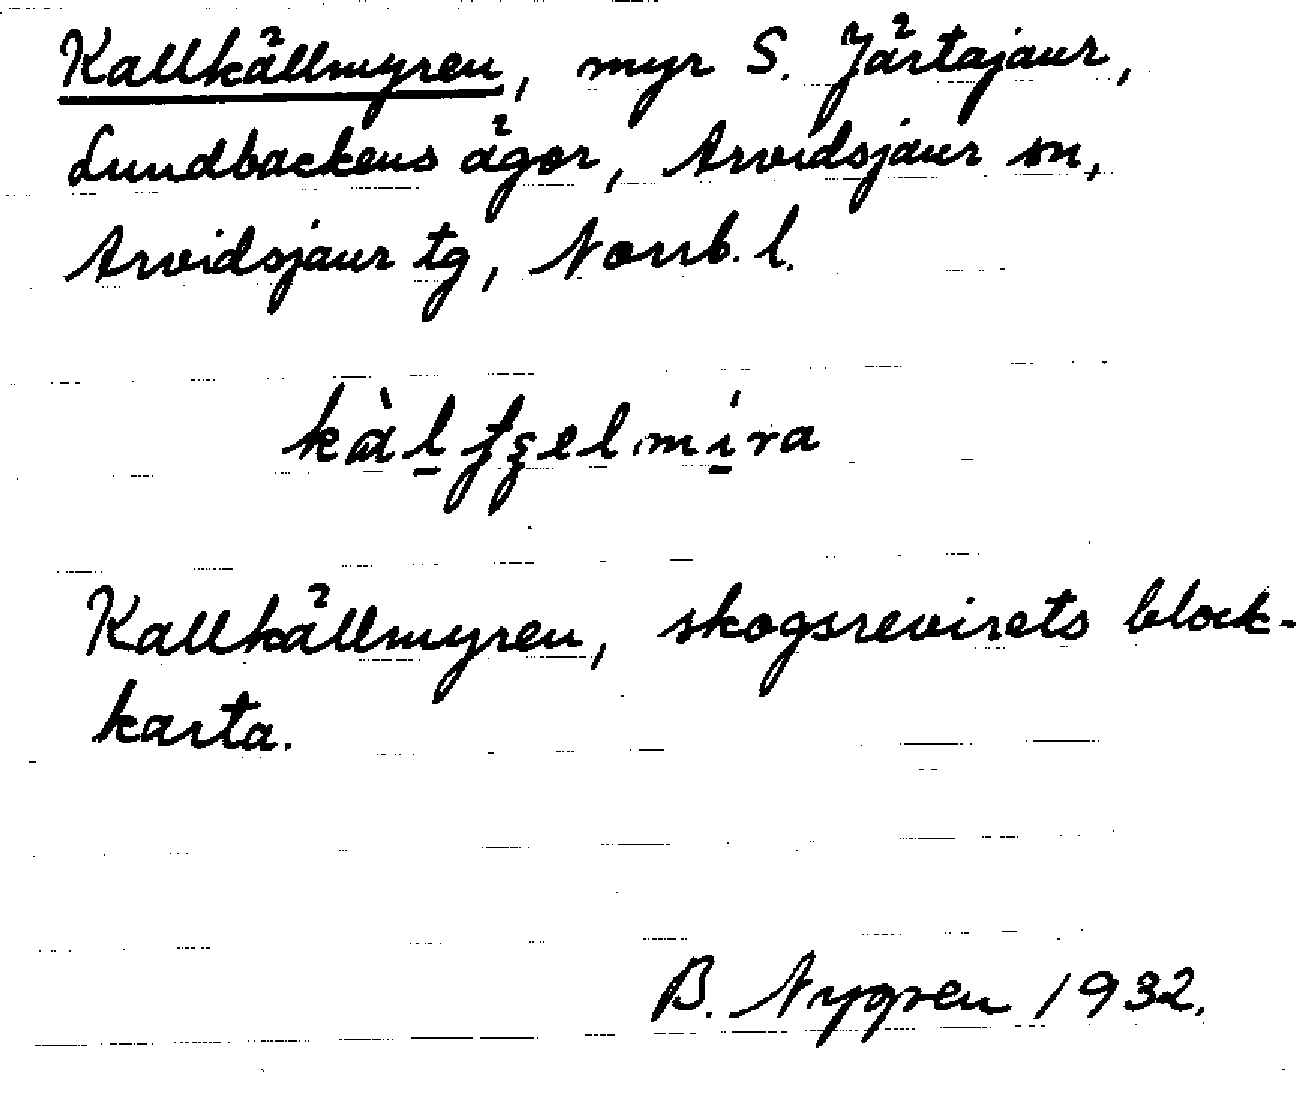 Kallkällmyren, myr S. Järtajaur,
Lundbackens ägor, Arvidsjaur sn,
Arvidsjaur tg, Norrb. l.
Kallkällmyren, skogsrevirets block-
karta.
B. Nygren 1932.